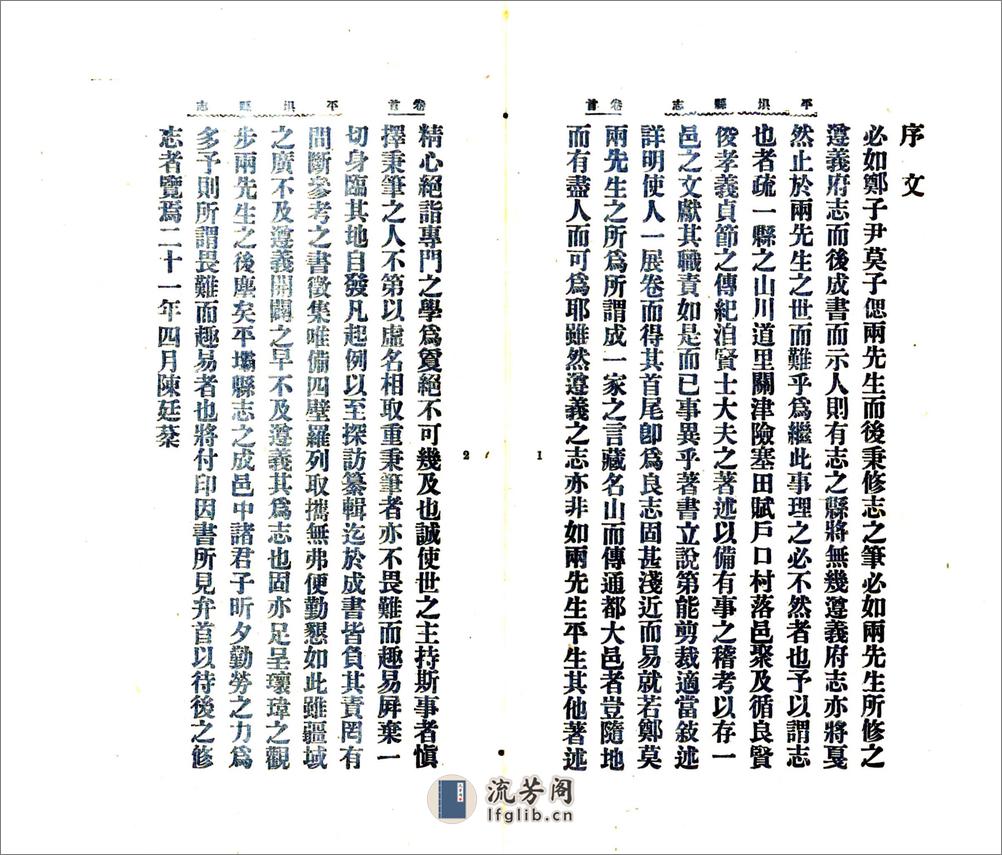 平垻縣志 卷首
序文
必如鄭子尹莫子偲兩先生而後秉修志之筆必如兩先生所修之
遵義府志而後成書而示人則有志之縣將無幾遵義府志亦將戛
然止於兩先生之世而難乎爲繼此事理之必不然者也予以謂志
也者疏一縣之山川道里關津險塞田賦戶口村落邑聚及循良賢
俊孝義貞節之傳紀洎賢士大夫之著述以備有事之稽考以存一
邑之文獻其職責如是而已事異乎著書立說第能剪裁適當敘述
詳明使人一展卷而得其首尾卽爲良志固甚淺近而易就若鄭莫
兩先生之所爲所謂成一家之言藏名山而傳通都大邑者豈隨地
而有盡人而可爲耶雖然遵義之志亦非如兩先生平生其他著述
1
平垻縣志 卷首
精心絕詣專門之學爲夐絕不可幾及也誠使世之主持斯事者愼
擇秉筆之人不第以虛名相取重秉筆者亦不畏難而趣易屛棄一
切身臨其地自發凡起例以至探訪纂輯迄於成書皆負其責罔有
間斷參考之書徵集唯備四壁羅列取攜無弗便勤懇如此雖疆域
之廣不及遵義開闢之早不及遵義其爲志也固亦足呈瓌瑋之觀
步兩先生之後塵矣平壩縣志之成邑中諸君子昕夕勤勞之力爲
多予則所謂畏難而趣易者也將付印因書所見弁首以待後之修
志者覽焉二十一年四月陳廷棻
2
流芳阁
lfglib.cn